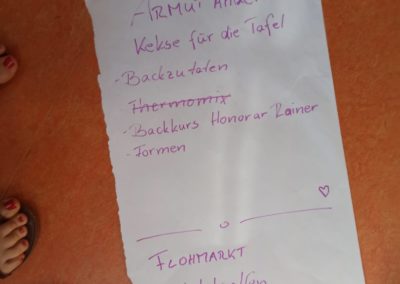 ARMUT
Kekse für die Tafel
- Backzutaten
- Thermomix
- Backkurs Honorar Rainer
- Formen
♡
FLOHMARKT